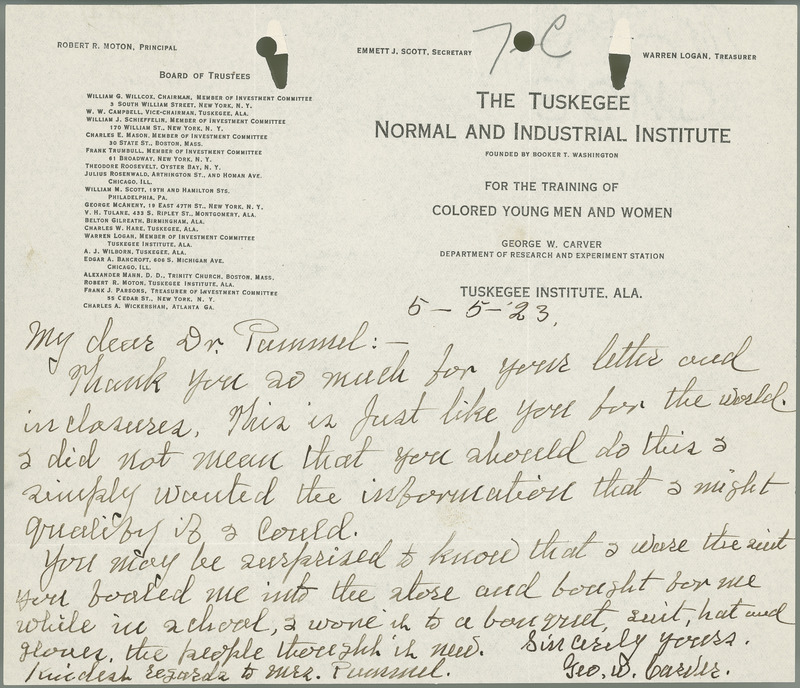 ROBERT R. MOTON, PRINCIPAL
EMMETT J. SCOTT, SECRETARY
7-C
WARREN LOGAN, TREASURER
BOARD OF TRUSTEES
WILLIAM G. WILLCOX, CHAIRMAN, MEMBER OF INVESTMENT COMMITTEE
3 SOUTH WILLIAM STREET, NEW YORK, N. Y.
W. W. CAMPBELL, VICE-CHAIRMAN, TUSKEGEE, ALA.
WILLIAM J. SCHIEFFELIN, MEMBER OF INVESTMENT COMMITTEE
170 WILLIAM ST., NEW YORK, N. Y.
CHARLES E. MASON, MEMBER OF INVESTMENT COMMITTEE
30 STATE ST., BOSTON, MASS.
FRANK TRUMBULL, MEMBER OF INVESTMENT COMMITTEE
61 BROADWAY, NEW YORK, N. Y.
THEODORE ROOSEVELT, OYSTER BAY, N. Y.
JULIUS ROSENWALD, ARTHINGTON ST., AND HOMAN AVE.
CHICAGO, ILL.
WILLIAM M. SCOTT, 19TH AND HAMILTON STS.
PHILADELPHIA, PA.
GEORGE MCANENY, 19 EAST 47TH ST., NEW YORK, N. Y.
V. H. TULANE, 433 S. RIPLEY ST., MONTGOMERY, ALA.
BELTON GILREATH, BIRMINGHAM, ALA.
CHARLES W. HARE, TUSKEGEE, ALA.
WARREN LOGAN, MEMBER OF INVESTMENT COMMITTEE
TUSKEGEE INSTITUTE, ALA.
A. J. WILBORN, TUSKEGEE, ALA.
EDGAR A. BANCROFT, 606 S. MICHIGAN AVE.
CHICAGO, ILL.
ALEXANDER MANN, D. D., TRINITY CHURCH, BOSTON, MASS.
ROBERT R. MOTON, TUSKEGEE INSTITUTE, ALA.
FRANK J. PARSONS, TREASURER OF INVESTMENT COMMITTEE
55 CEDAR ST., NEW YORK, N. Y.
CHARLES A. WICKERSHAM, ATLANTA GA.
THE TUSKEGEE
NORMAL AND INDUSTRIAL INSTITUTE
FOUNDED BY BOOKER T. WASHINGTON
FOR THE TRAINING OF
COLORED YOUNG MEN AND WOMEN
GEORGE W. CARVER
DEPARTMENT OF RESEARCH AND EXPERIMENT STATION
TUSKEGEE INSTITUTE, ALA.
5-5-'23,
My dear Dr. Pammel:-
Thank you so much for your letter and
inclosures. This is just like you for the world.
I did not mean that you should do this I
simply wanted the information that I might
qualify if I could.
You may be surprised to know that I wore the suit
you fooled me into the store and bought for me
while in school, I wore it to a banquet, suit, hat and
gloves, the people thought it new. Sincerely yours.
Kindest regards to Mrs. Pammel. Geo. W. Carver.